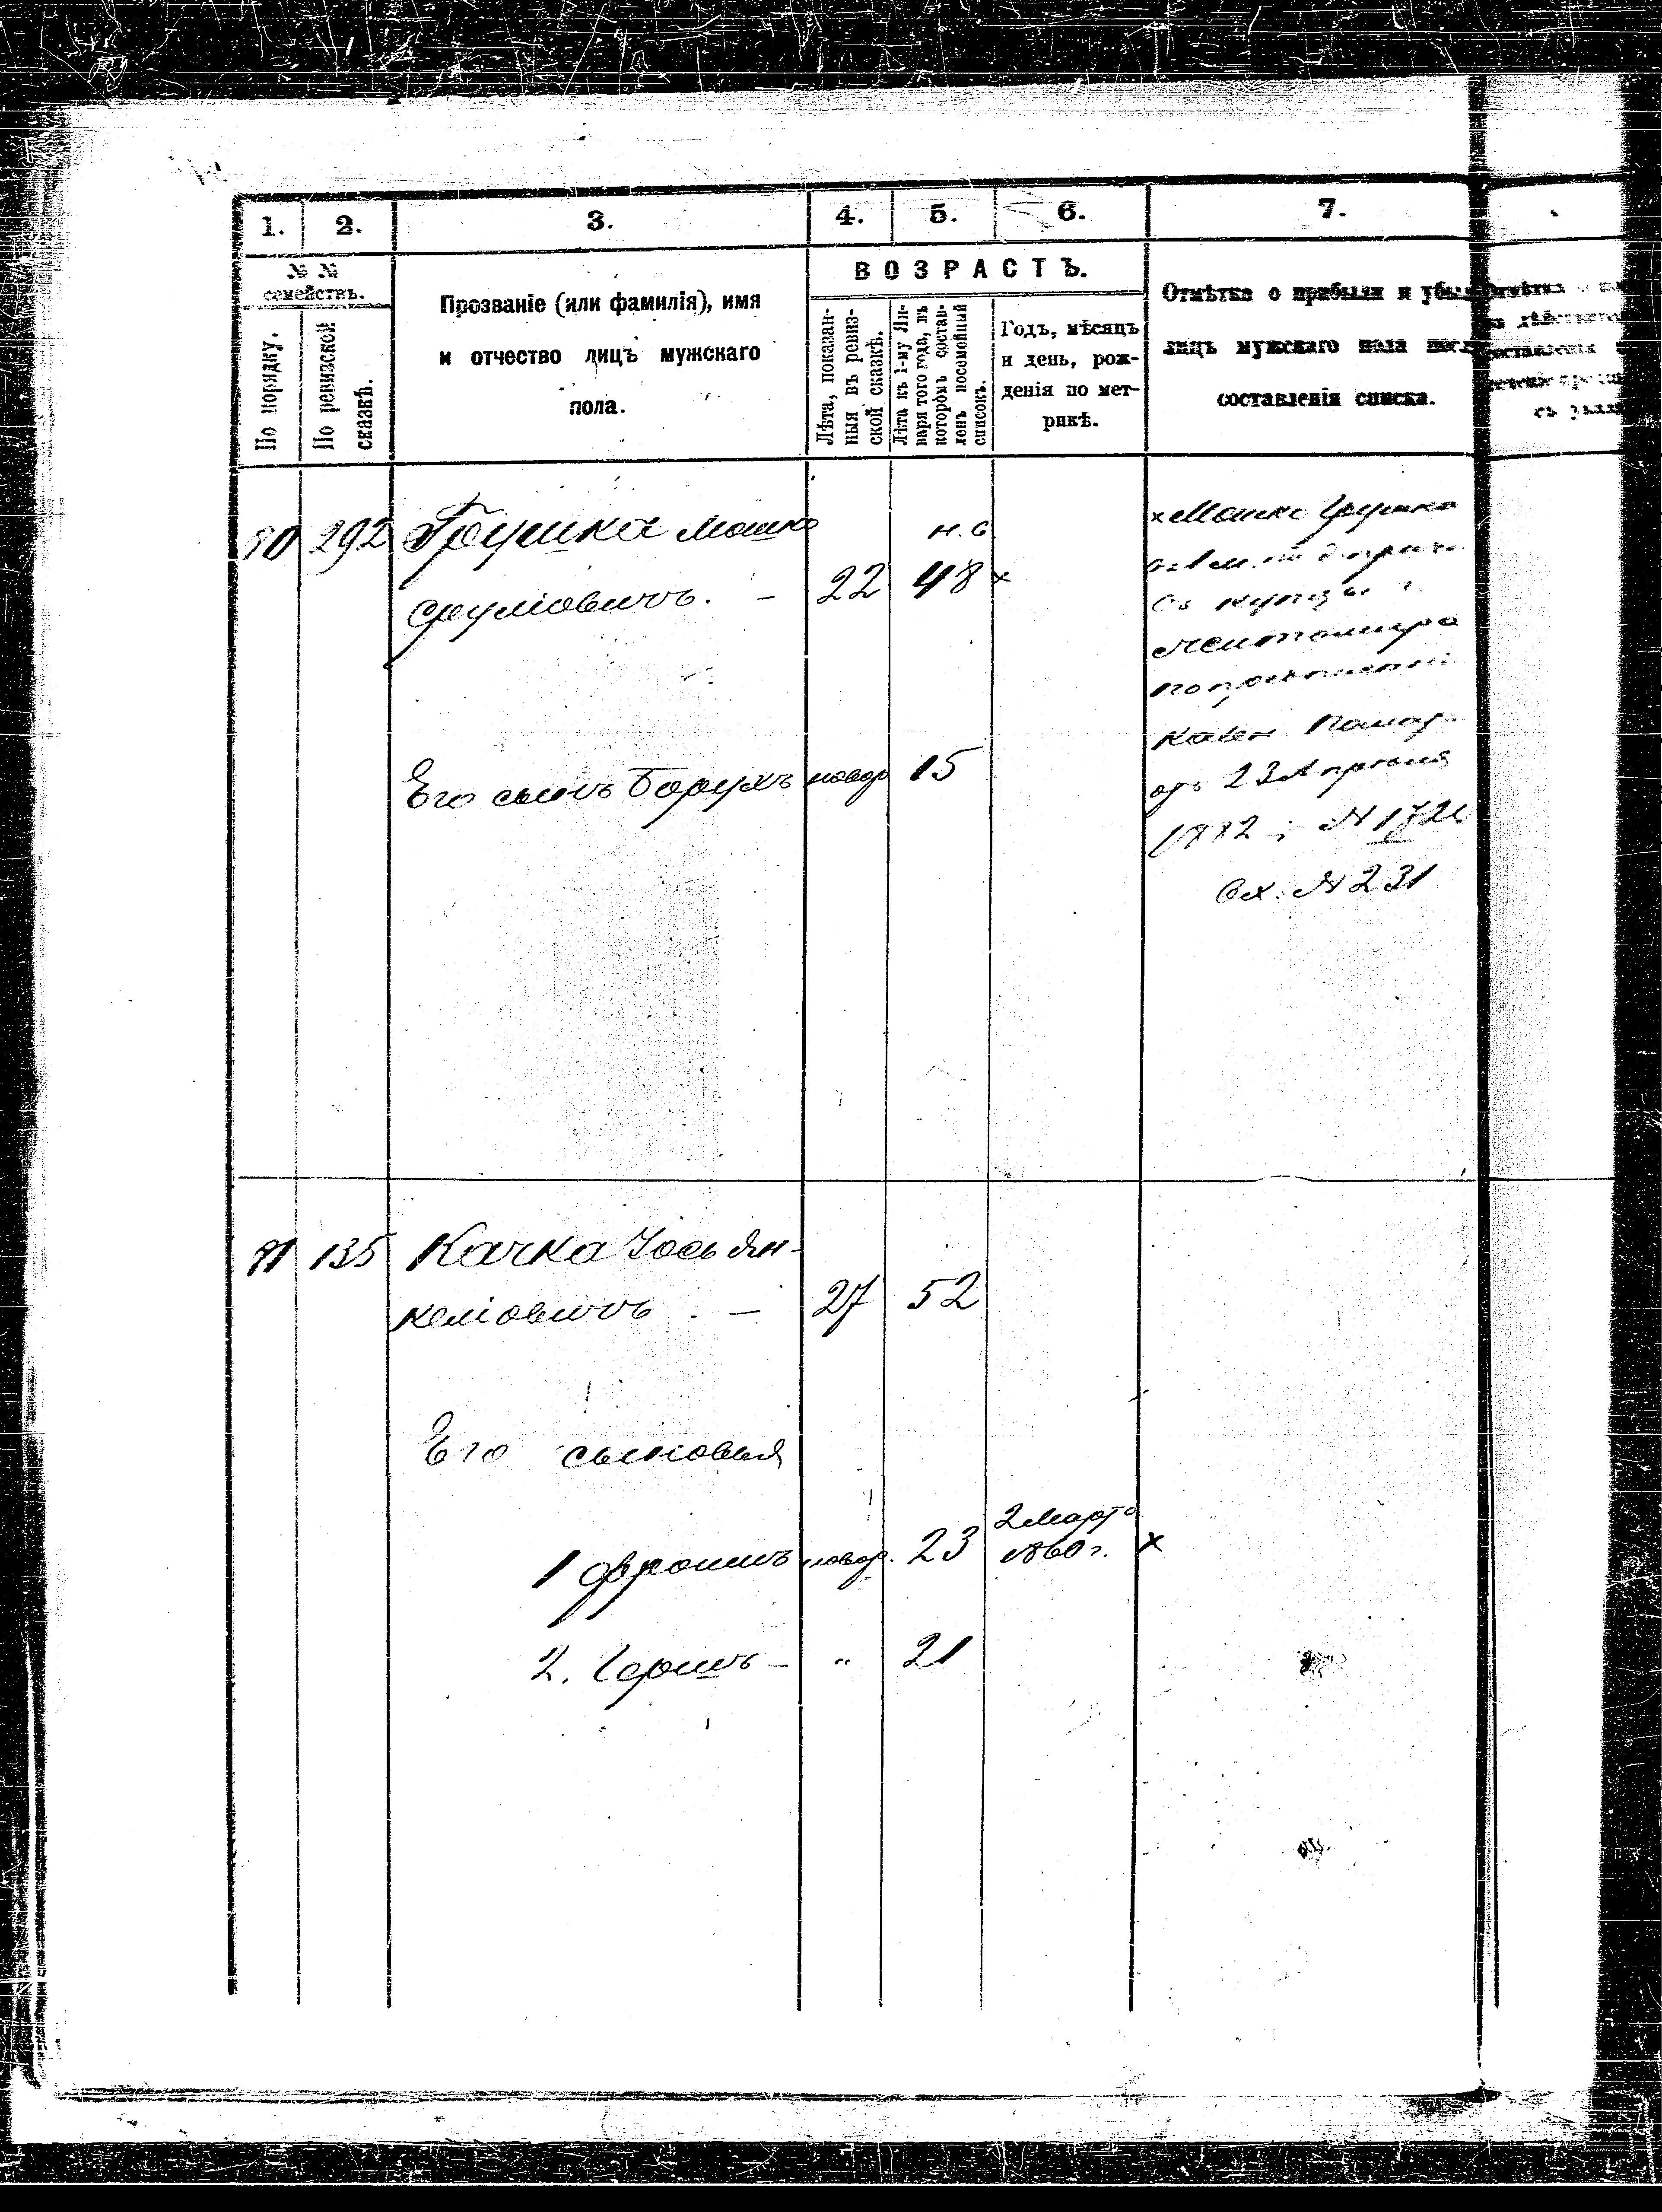 1. 2. 3. 4. 5. 6. 7.
№ №
семействъ.
По порядку.
По ревизской
сказкѣ.
Прозваніе (или фамилія), имя
и отчество лицъ мужскаго
пола.
ВОЗРАСТЪ.
Лѣта, показан-
ныя въ ревиз-
ской сказкѣ.
Лѣта къ 1-му Ян-
варя того года, въ
которомъ состав-
ленъ посемейный
списокъ.
Годъ, мѣсяцъ
и день, рож-
денія по мет-
рикѣ.
Отмѣтка о прибыли и убыли
лицъ мужскаго пола посл
составленія списка.
90 292 Грушка Мошко н.с.
Сруліовичъ. — 22 48 ×
Его сынъ Борухъ новор 15
× Мошко Грушка
съ купцы
Житомира
Казен. Палат.
отъ 23 Апрѣля
1882 № 172
Вх. № 231
91 135 Качка Іось Ян-
келіовичъ. — 27 52
Его сыновья
1 Фроимъ новор. 23 2 Марта
1860 г. ×
2. Гершъ — " 21